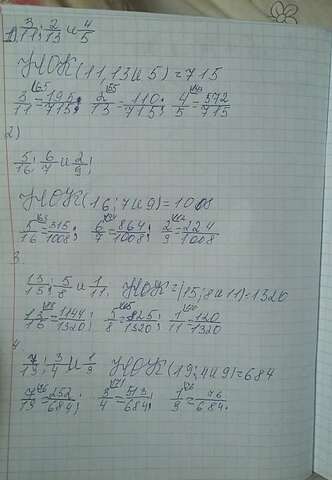 1) 3/11; 2/13 и 4/5
НОК(11,13и5)=715
3/11=195/715; 2/13=110/715; 4/5=572/715
2)
5/16; 6/7 и 2/9;
НОК(16;7и9)=1008
5/16=315/1008; 6/7=864/1008; 2/9=224/1008
3
13/15; 5/8 и 1/11. НОК=(15;8и11)=1320
13/15=1144/1320; 5/8=825/1320; 1/11=120/1320
4
7/19; 3/4 и 1/9 НОК(19;4и9)=684
7/19=252/684; 3/4=513/684; 1/9=76/684.